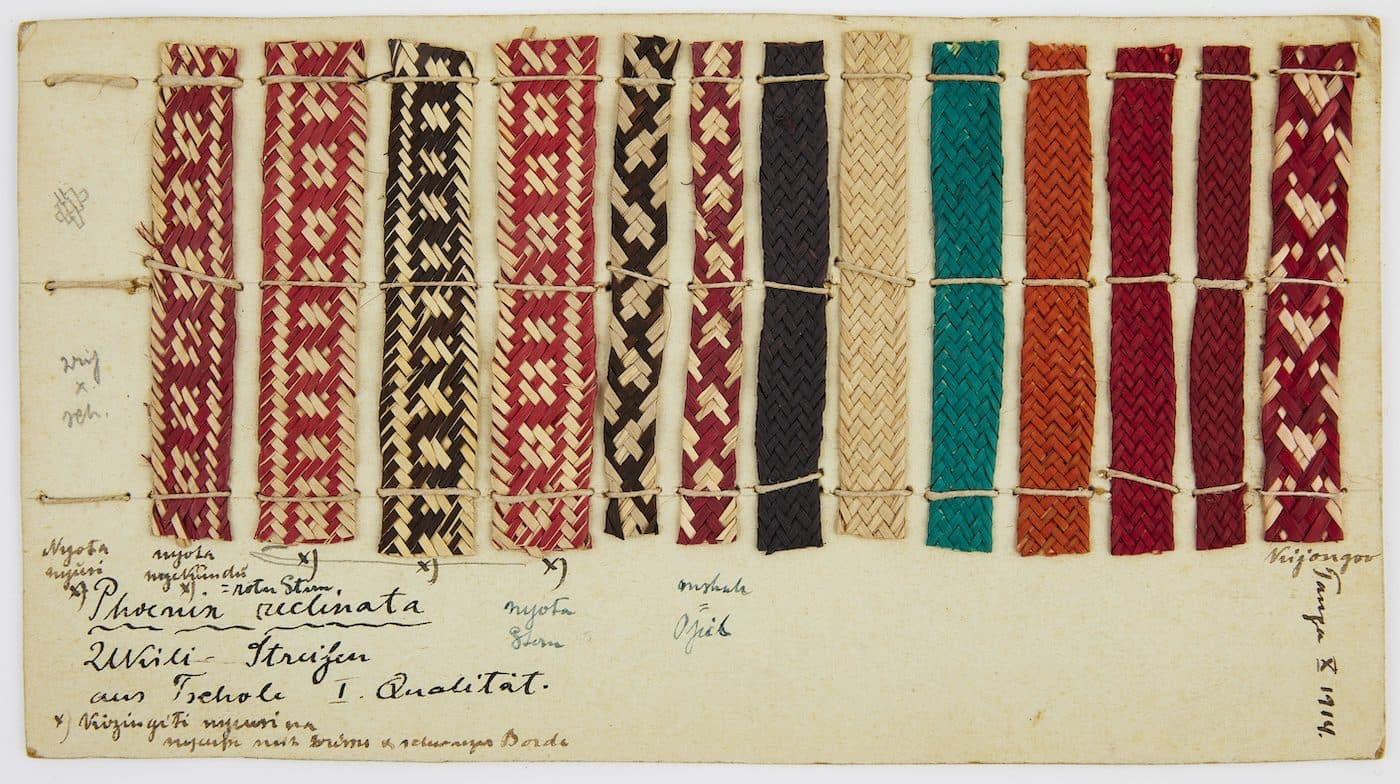 weiß
x
sch.
Nyota
nyeusi
x)
nyota
nyekundu
x) = roter Stern
x)
x)
x)
Phoenix reclinata
Ukili-Streifen
aus Tschole I. Qualität.
x) Kizingiti nyeusi na
nyeupe mit x Borde
nyota
Stern
mshale
=
Pfeil
Tanga X 1914.